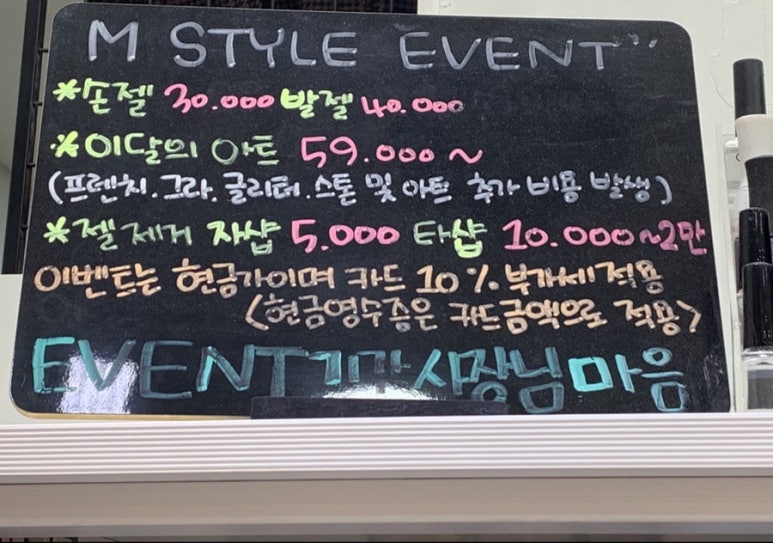 M STYLE EVENT'''
*손젤 30.000 발젤 40.000
*이달의 아트 59.000~
(프렌치.그라.글리터.스톤 및 아트 추가 비용 발생)
*젤제거 자샵 5.000 타샵 10.000~2만
이벤트는 현금가이며 카드 10% 부가세적용
(현금영수증은 카드금액으로 적용)
EVENT기간 사장님마음